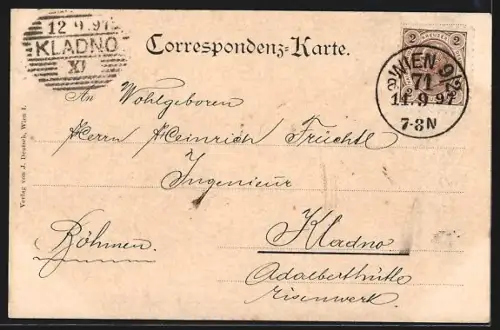 12.9.97
KLADNO
XI
Correspondenz-Karte.
2 KREUZER 2
WIEN 9/3
71
11.9.97
7-8N
An Wohlgeboren
Herrn Heinrich Früchtl
Ingenieur
Kladno
Böhmen.
Adalberthütte
Eisenwerk.
Verlag von J. Deutsch, Wien I.